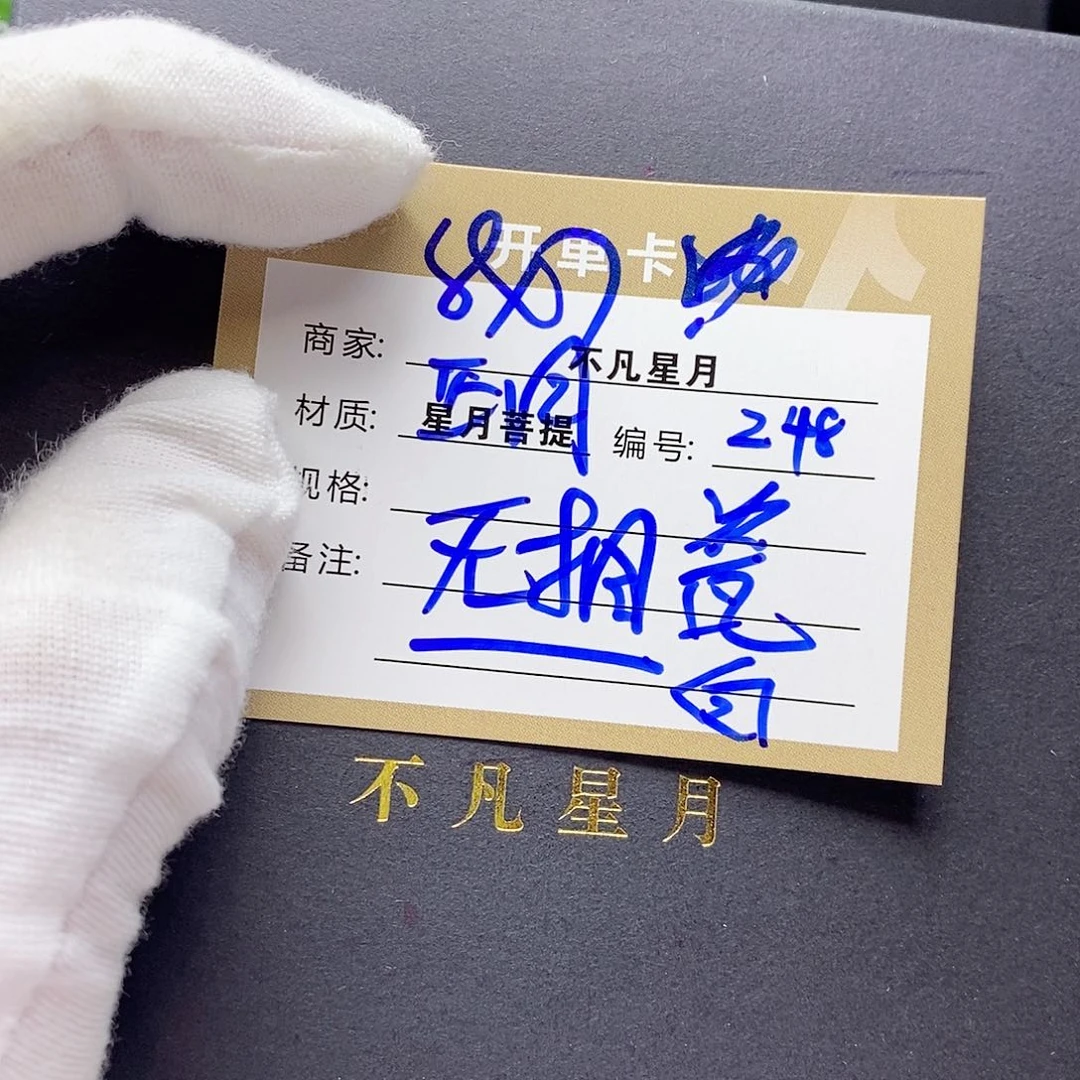 开单卡
8X7
商家: 不凡星月
正月
材质: 星月菩提 编号: 248
规格:
备注:
无拥
白
不凡星月